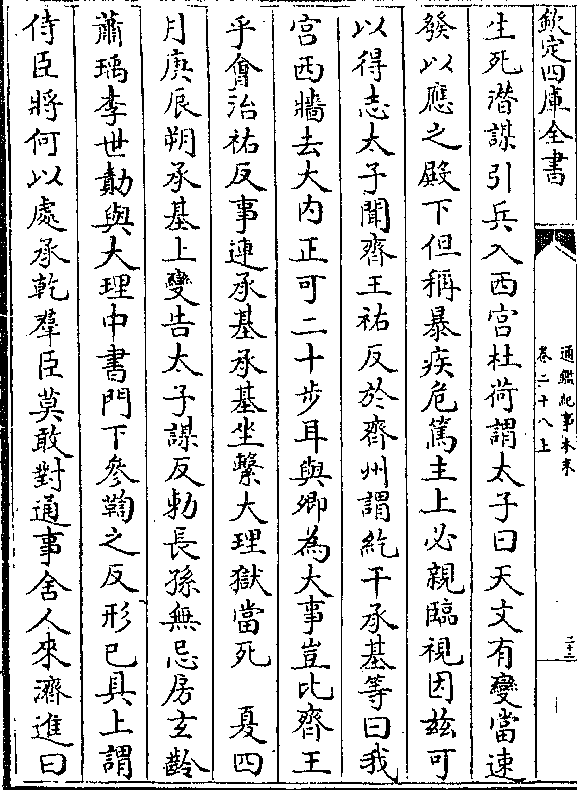 欽定四庫全書
通鑑紀事本末
卷二十八上
二十二
生死潛謀引兵入西宮杜荷謂太子曰天文有變當速
發以應之殿下但稱暴疾危篤主上必親臨視因茲可
以得志太子聞齊王祐反於齊州謂紇干承基等曰我
宮西牆去大內正可二十步耳與卿為大事豈比齊王
乎會治祐反事連承基承基坐繫大理獄當死　夏四
月庚辰朔承基上變告太子謀反勅長孫無忌房玄齡
蕭瑀李世勣與大理中書門下參鞫之反形已具上謂
侍臣將何以處承乾羣臣莫敢對通事舍人來濟進曰